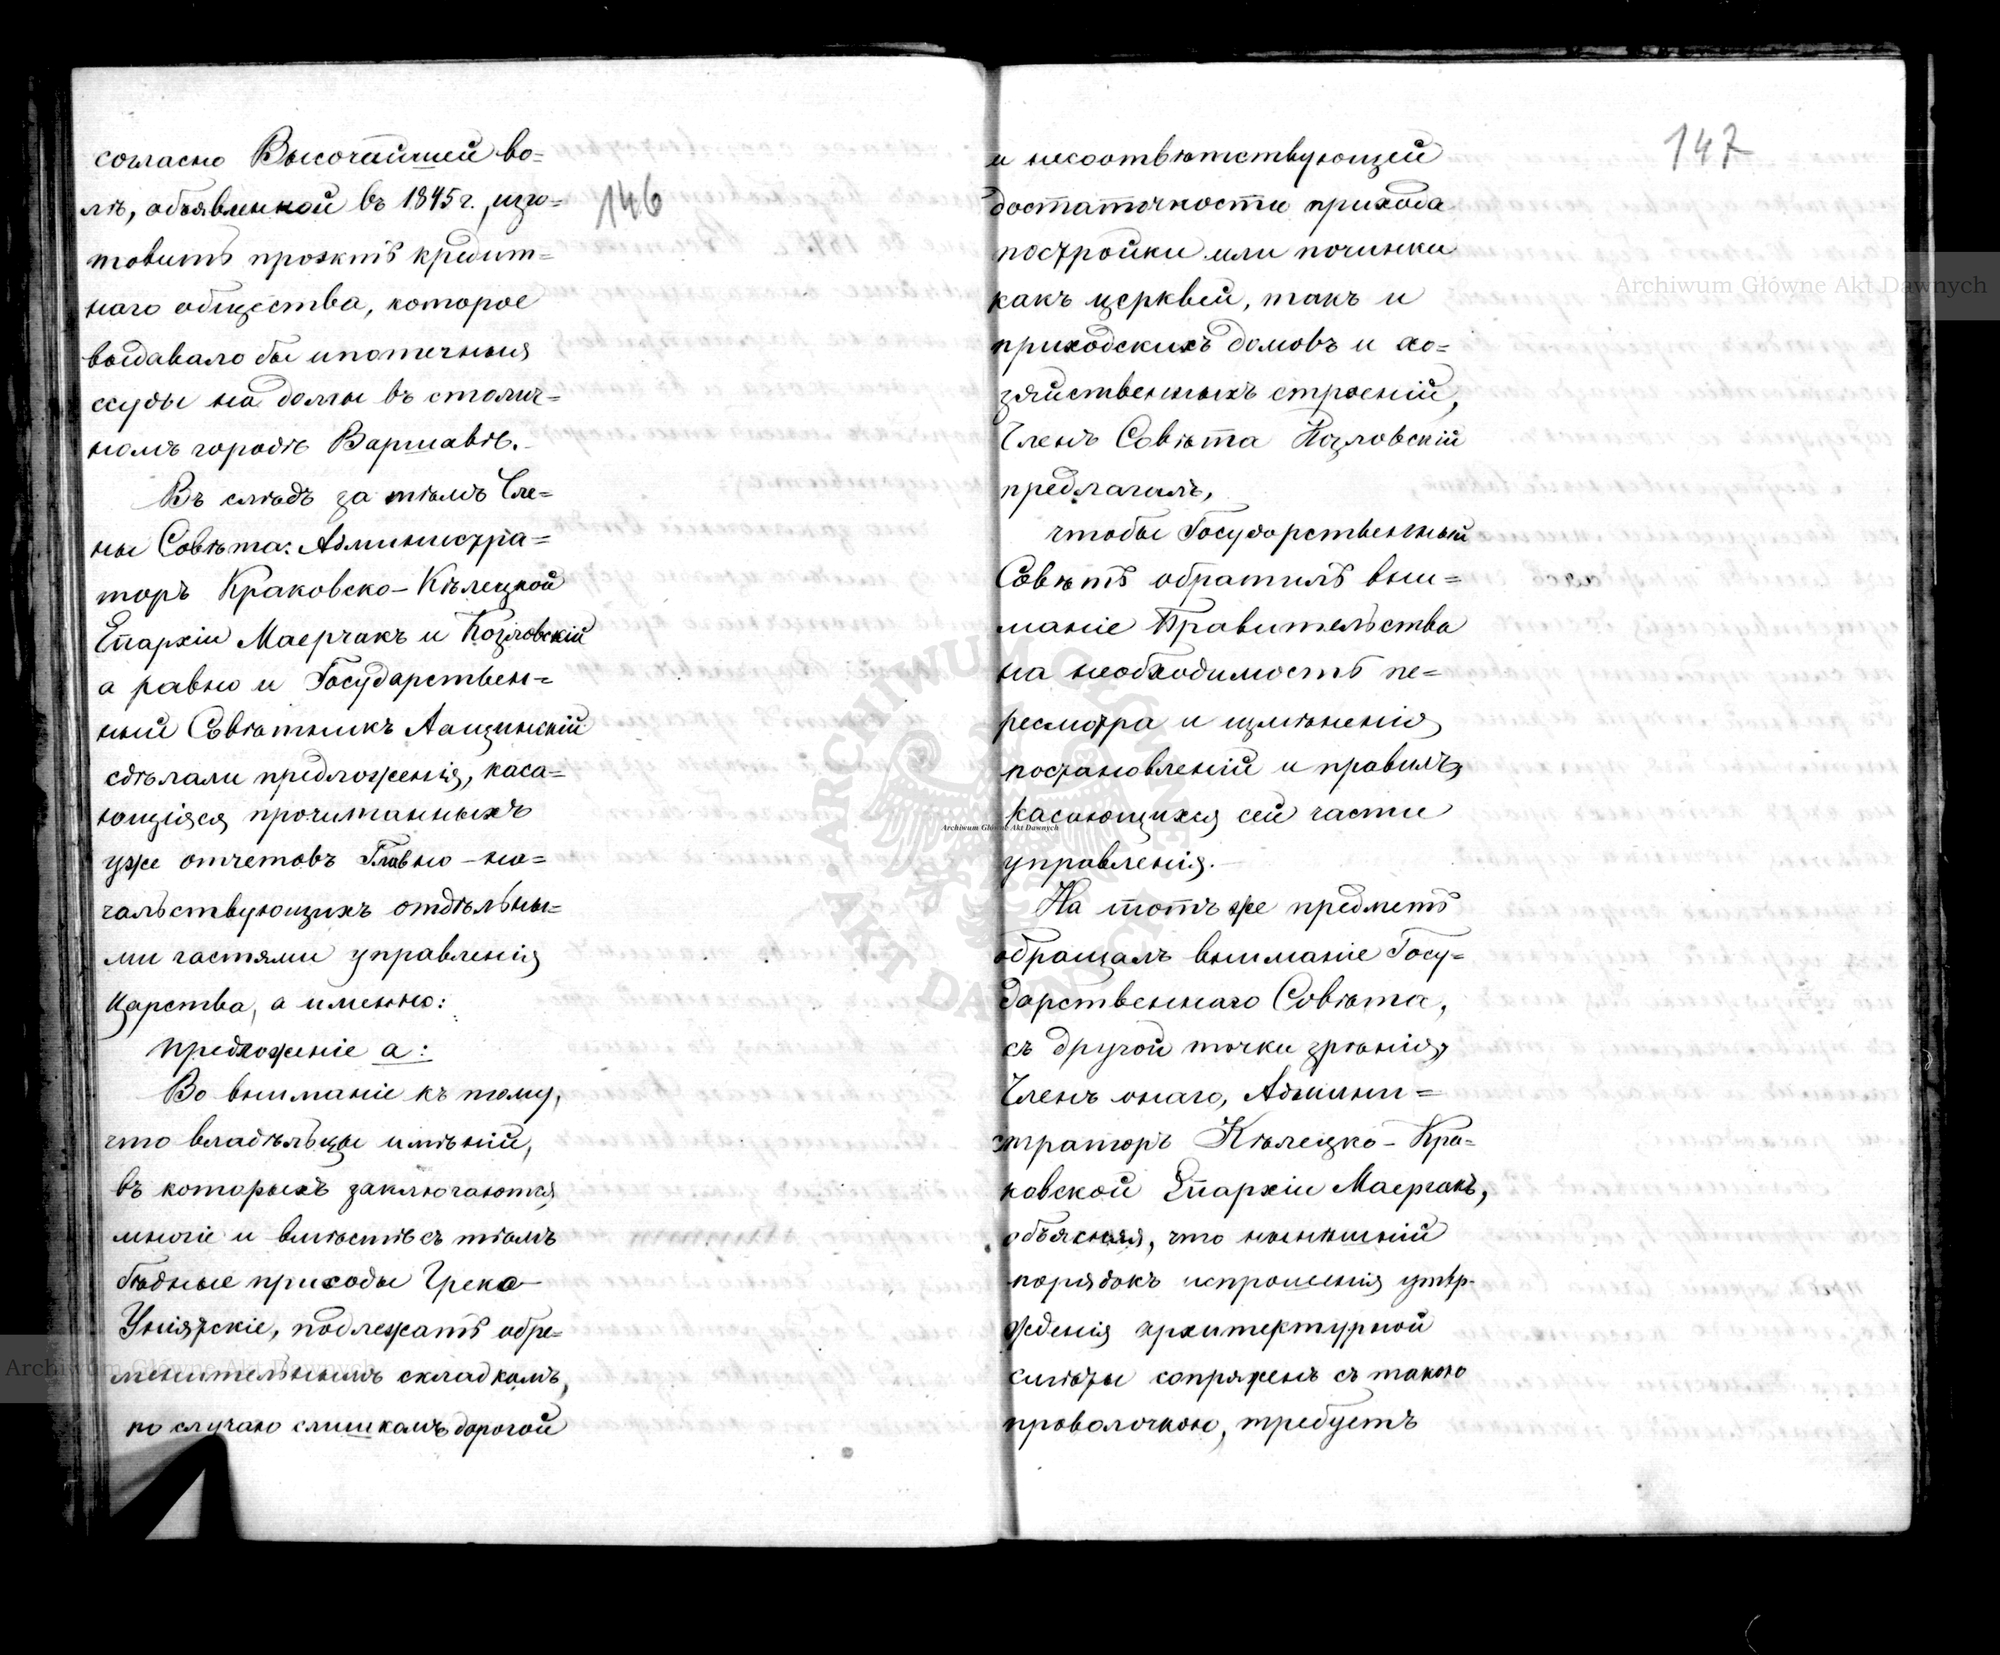 146
согласно Высочайшей во=
лѣ, объявленной въ 1845 г., изго=
товитъ проэктъ кредит=
наго общества, которое
выдавало бы ипотечныя
ссуды на домы въ столич=
номъ городѣ Варшавѣ.
Въ слѣдъ за тѣмъ Чле=
ны Совѣта: Администра=
торъ Краковско-Кѣлецкой
Епархіи Маерчакъ и Козловскій
а равно и Государствен=
ный Совѣтникъ Лащинскій
сдѣлали предложенія, каса=
ющіяся прочитанныхъ
уже отчетовъ Главно-на=
чальствующихъ отдѣльны=
ми частями управленія
Царства, а именно:
предложеніе а:
Во вниманіе къ тому,
что владѣльцы имѣній,
въ которыхъ заключаются
многіе и вмѣстѣ съ тѣмъ
бѣдные приходы Греко-
Уніятскіе, подлежатъ обре=
менительнымъ складкамъ,
по случаю слишкомъ дорогой
147
и несоотвѣтствующей
достаточности прихода
постройки или починки
какъ церквей, такъ и
приходскихъ домовъ и хо=
зяйственныхъ строеній,
Членъ Совѣта Козловскій
предлагалъ,
чтобы Государственный
Совѣтъ обратилъ вни=
маніе Правительства
на необходимость пе=
ресмотра и измѣненія
постановленій и правилъ,
касающихся сей части
управленія.
На тотъ же предметъ
обращалъ вниманіе Госу=
дарственнаго Совѣта,
съ другой точки зрѣнія,
Членъ онаго, Админи=
страторъ Кѣлецко-Кра=
ковской Епархіи Маерчакъ,
объясняя, что нынѣшній
порядокъ испрошенія утвер-
жденія архитектурной
смѣты сопряженъ съ такою
проволочкою, требуетъ
Archiwum Główne Akt Dawnych
Archiwum Główne Akt Dawnych
Archiwum Główne Akt Dawnych
ARCHIWUM GŁÓWNE AKT DAWNYCH